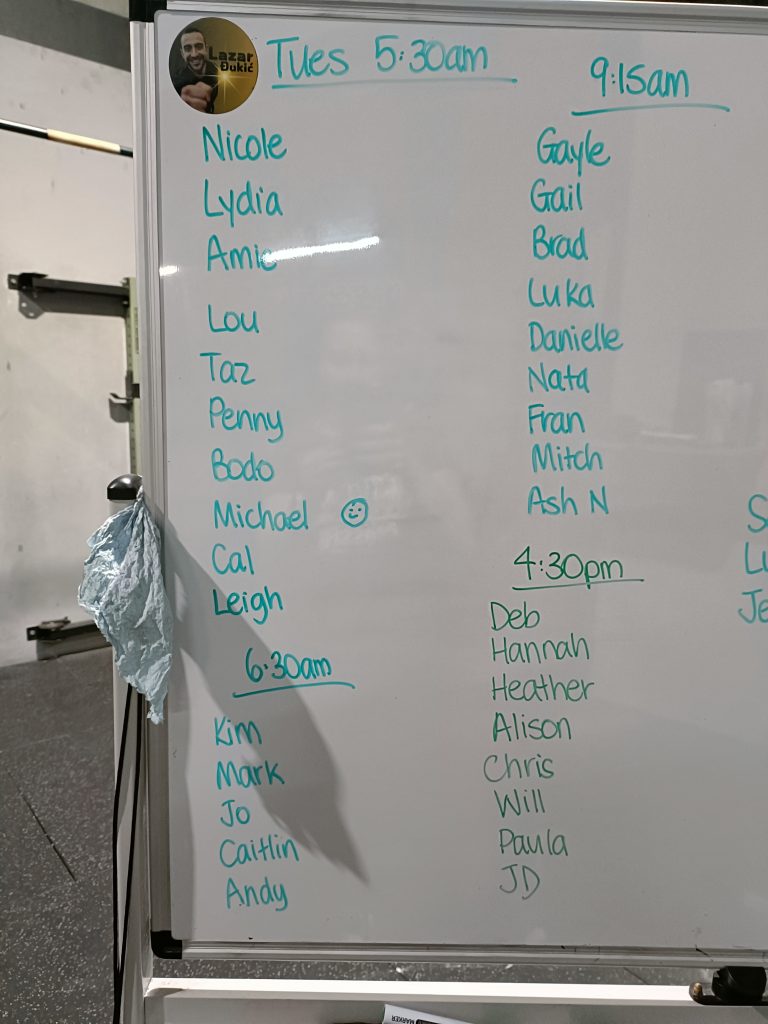 Lazar
Đukić
Tues 5:30am
Nicole
Lydia
Amie
Lou
Taz
Penny
Bodo
Michael
Cal
Leigh
6:30am
Kim
Mark
Jo
Caitlin
Andy
9:15am
Gayle
Gail
Brad
Luka
Danielle
Nata
Fran
Mitch
Ash N
4:30pm
Deb
Hannah
Heather
Alison
Chris
Will
Paula
JD
MARKER